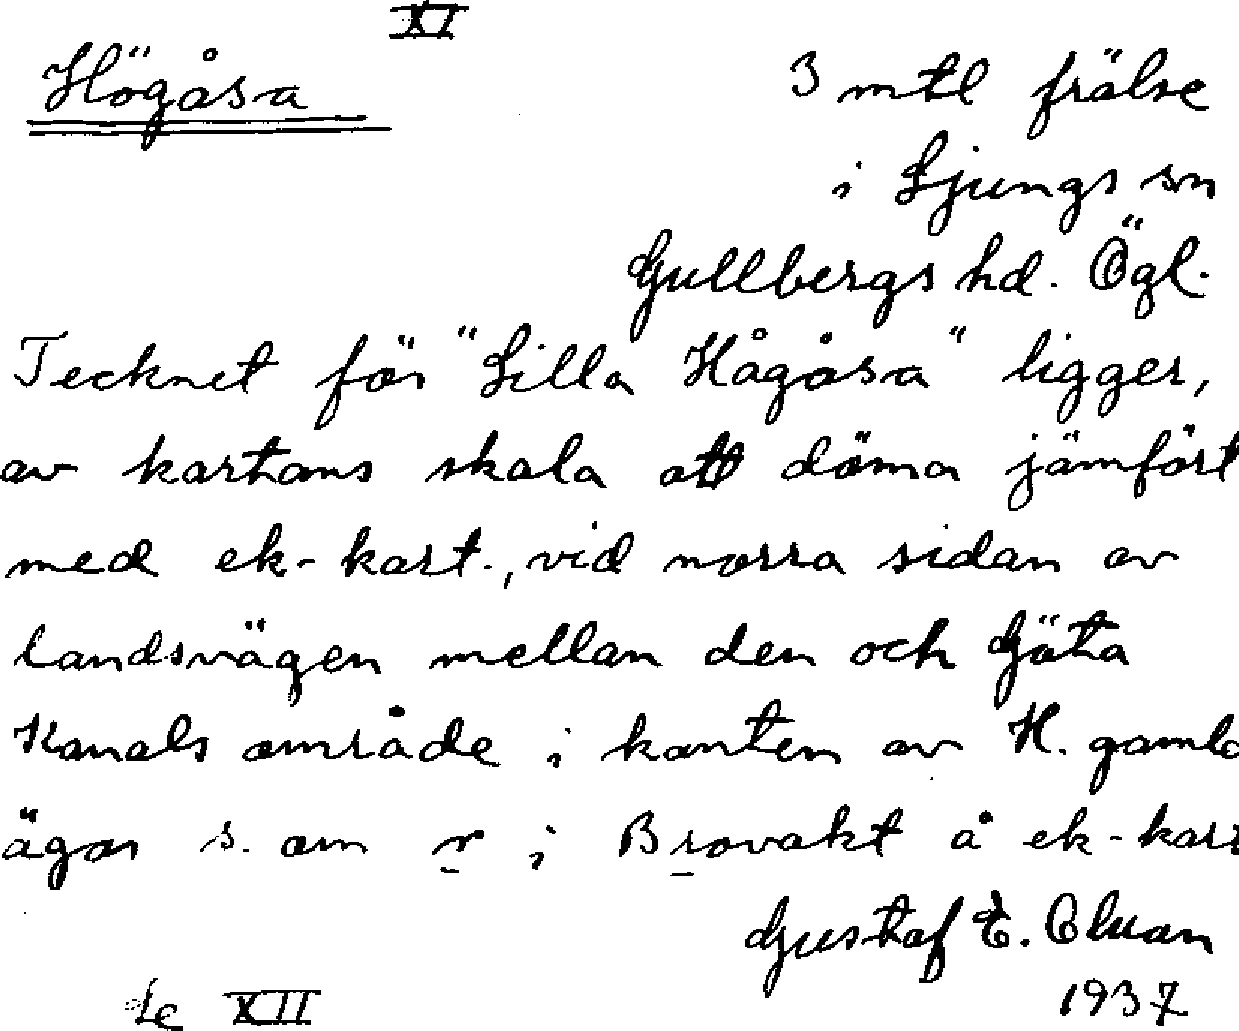 XI
Högåsa
3 mtl frälse
i Ljungs sn
Gullbergs hd. Ögl.
Tecknet för "Lilla Hågåsa" ligger,
av kartans skala att döma jämfört
med ek-kart., vid norra sidan av
landsvägen mellan den och Göta
Kanals område i kanten av H. gamla
ägor s. om r i Brovakt å ek-kart
Gustaf E.
1937
Se XII